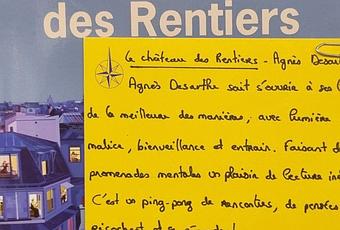 des Rentiers
Le château des Rentiers - Agnès Desar
Agnès Desarthe sait s'ouvrir à ses l
de la meilleure des manières, avec lumière
malice, bienveillance et entrain. Faisant d
promenades mentales un plaisir de lecture iné
C'est un ping-pong de rencontres, de pensées
ricochent